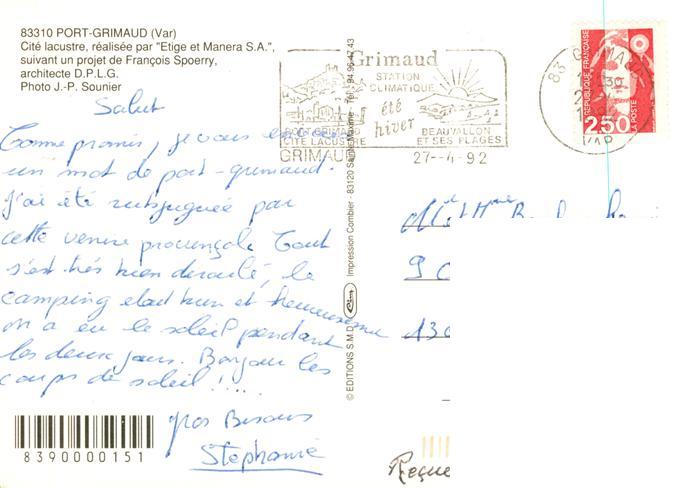 83310 PORT-GRIMAUD (Var)
Cité lacustre, réalisée par "Etige et Manera S.A.",
suivant un projet de François Spoerry,
architecte D.P.L.G.
Photo J.-P. Sounier
Salut
Comme promis, je vous
un mot de port-grimaud.
J'ai été subjuguée par
cette venise provençale Tout
s'est très bien déroulé, le
camping etait bien et heureusement
on a eu le soleil pendant
les deux jours. Bonjour les
coups de soleil !...
gros Bisous
Stephanie
8390000151
© EDITIONS S.M.D.
Impression Combier - 83120 Sainte-Maxime - Tél. 94.96.47.43
Grimaud
STATION
CLIMATIQUE
été
hiver
PORT GRIMAUD
CITÉ LACUSTRE
GRIMAUD
BEAUVALLON
ET SES PLAGES
27--4-92
83 GRIMAUD
VAR
REPUBLIQUE FRANÇAISE
2,50
LA POSTE
90
130
Reçue